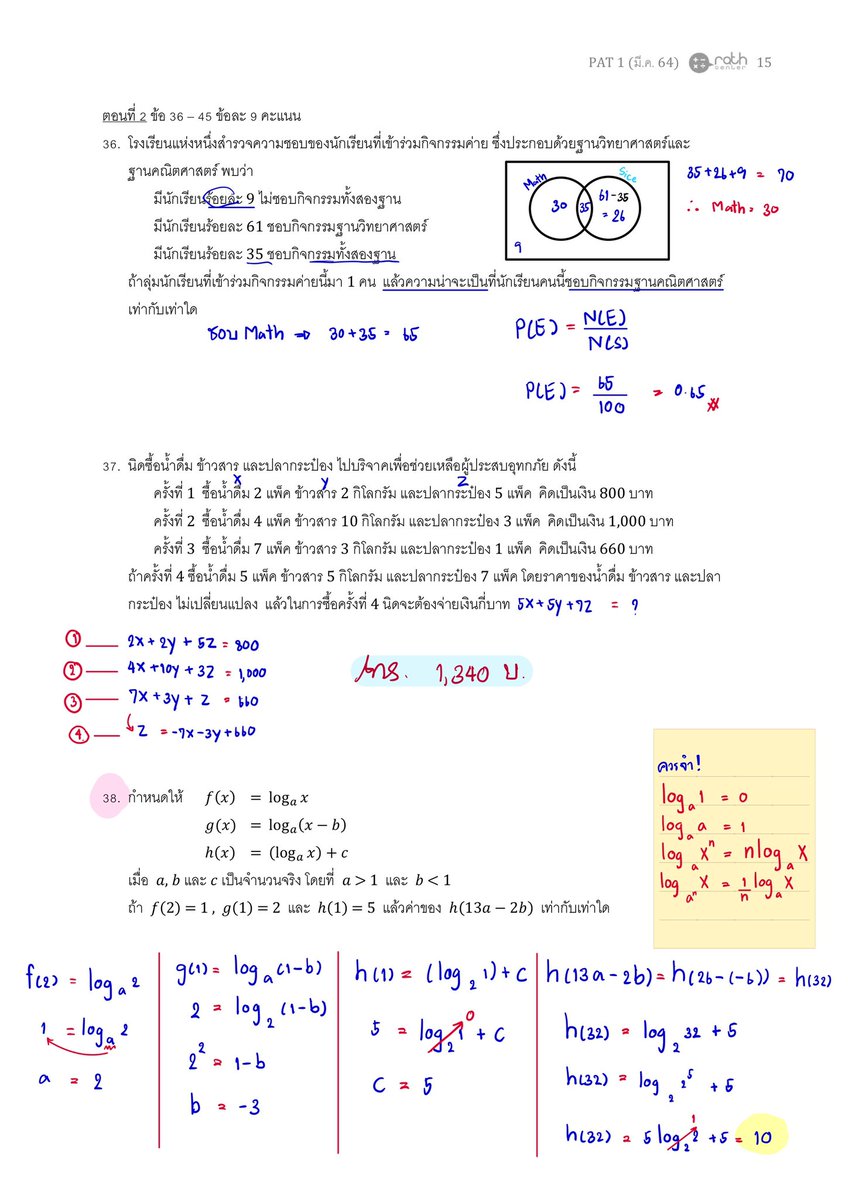 PAT 1 (มี.ค. 64) rath center 15
ตอนที่ 2 ข้อ 36 – 45 ข้อละ 9 คะแนน
36. โรงเรียนแห่งหนึ่งสำรวจความชอบของนักเรียนที่เข้าร่วมกิจกรรมค่าย ซึ่งประกอบด้วยฐานวิทยาศาสตร์และ
ฐานคณิตศาสตร์ พบว่า
มีนักเรียนร้อยละ 9 ไม่ชอบกิจกรรมทั้งสองฐาน
มีนักเรียนร้อยละ 61 ชอบกิจกรรมฐานวิทยาศาสตร์
มีนักเรียนร้อยละ 35 ชอบกิจกรรมทั้งสองฐาน
Math
Sice
30
35
61-35
= 26
9
35+26+9 = 70
∴ Math = 30
ถ้าลุ่มนักเรียนที่เข้าร่วมกิจกรรมค่ายนี้มา 1 คน แล้วความน่าจะเป็นที่นักเรียนคนนี้ชอบกิจกรรมฐานคณิตศาสตร์
เท่ากับเท่าใด
ชอบ Math ⇒ 30+35 = 65
P(E) = N(E)/N(S)
P(E) = 65/100 = 0.65
37. นิดซื้อน้ำดื่ม ข้าวสาร และปลากระป๋อง ไปบริจาคเพื่อช่วยเหลือผู้ประสบอุทกภัย ดังนี้
x y z
ครั้งที่ 1 ซื้อน้ำดื่ม 2 แพ็ค ข้าวสาร 2 กิโลกรัม และปลากระป๋อง 5 แพ็ค คิดเป็นเงิน 800 บาท
ครั้งที่ 2 ซื้อน้ำดื่ม 4 แพ็ค ข้าวสาร 10 กิโลกรัม และปลากระป๋อง 3 แพ็ค คิดเป็นเงิน 1,000 บาท
ครั้งที่ 3 ซื้อน้ำดื่ม 7 แพ็ค ข้าวสาร 3 กิโลกรัม และปลากระป๋อง 1 แพ็ค คิดเป็นเงิน 660 บาท
ถ้าครั้งที่ 4 ซื้อน้ำดื่ม 5 แพ็ค ข้าวสาร 5 กิโลกรัม และปลากระป๋อง 7 แพ็ค โดยราคาของน้ำดื่ม ข้าวสาร และปลา
กระป๋อง ไม่เปลี่ยนแปลง แล้วในการซื้อครั้งที่ 4 นิดจะต้องจ่ายเงินกี่บาท 5x+5y+7z = ?
① 2x+2y+5z = 800
② 4x+10y+3z = 1,000
③ 7x+3y+z = 660
④ z = -7x-3y+660
Ans. 1,340 บ.
38. กำหนดให้ f(x) = logₐ x
g(x) = logₐ(x − b)
h(x) = (logₐ x) + c
เมื่อ a, b และ c เป็นจำนวนจริง โดยที่ a > 1 และ b < 1
ถ้า f(2) = 1 , g(1) = 2 และ h(1) = 5 แล้วค่าของ h(13a − 2b) เท่ากับเท่าใด
ควรจำ!
logₐ 1 = 0
logₐ a = 1
logₐ xⁿ = n logₐ x
log_aⁿ x = 1/n logₐ x
f(2) = logₐ 2
1 = logₐ 2
a = 2
g(1) = logₐ (1-b)
2 = log₂ (1-b)
2² = 1-b
b = -3
h(1) = (log₂ 1) + C
5 = log₂ 1 + C
0
C = 5
h(13a-2b) = h(26-(-6)) = h(32)
h(32) = log₂ 32 + 5
h(32) = log₂ 2⁵ + 5
1
h(32) = 5 log₂ 2 + 5 = 10